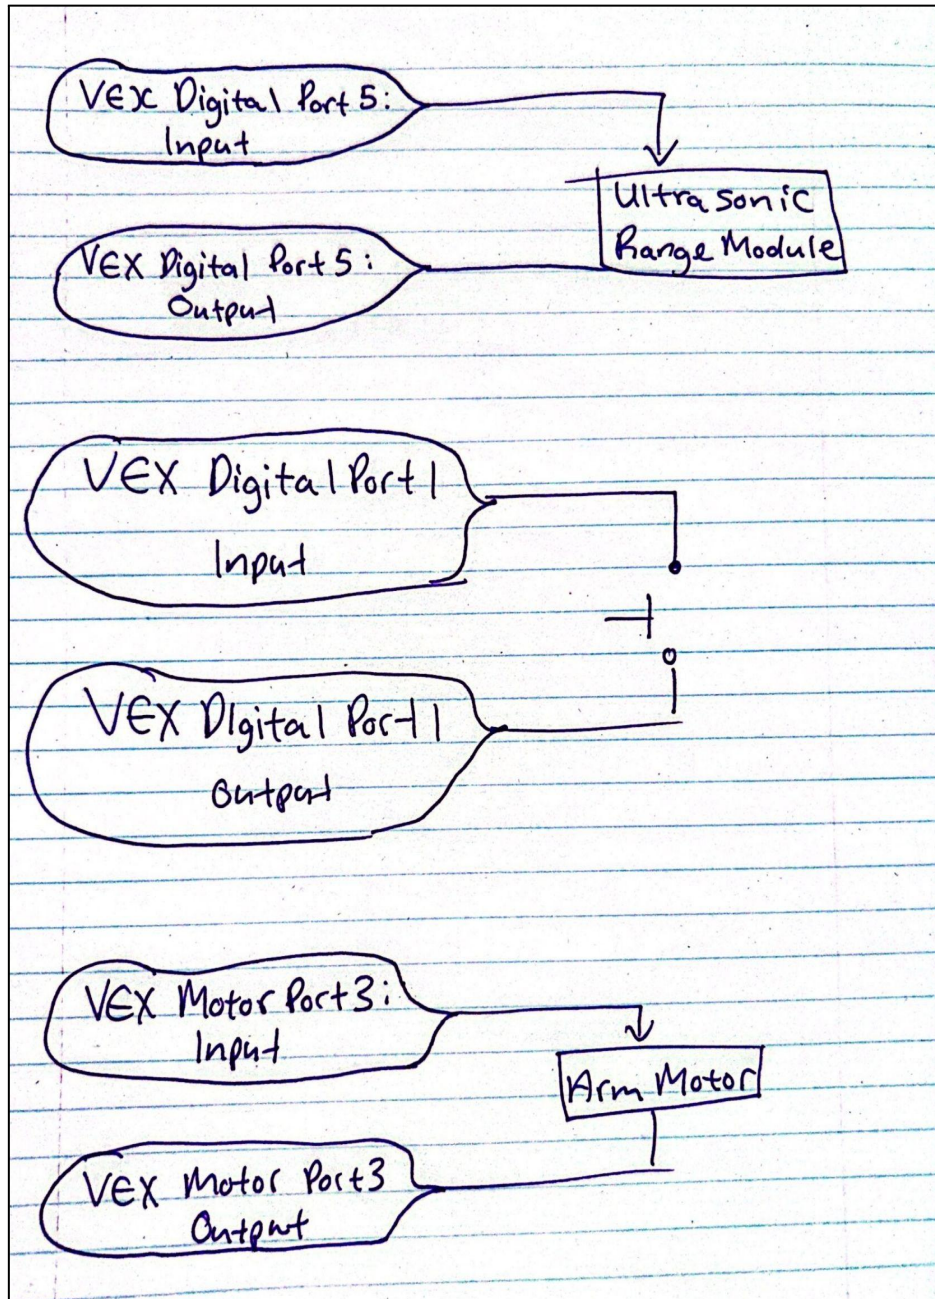 VEX Digital Port 5:
Input
Ultrasonic
Range Module
VEX Digital Port 5:
Output
VEX Digital Port 1
Input
VEX DIgital Port 1
Output
VEX Motor Port 3:
Input
Arm Motor
VEX Motor Port 3
Output